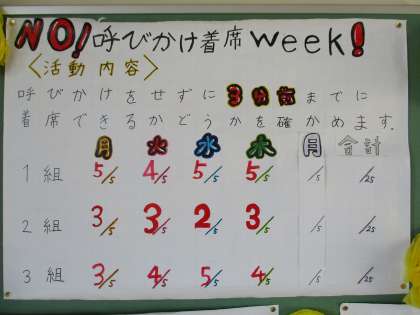 NO!呼びかけ着席week!
<活動 内容>
呼びかけをせずに3分前までに
着席できるかどうかを確かめます.
月 火 水 木 月 合計
1組 5/5 4/5 5/5 5/5 /5 /25
2組 3/5 3/5 2/5 3/5 /5 /25
3組 3/5 4/5 5/5 4/5 /5 /25